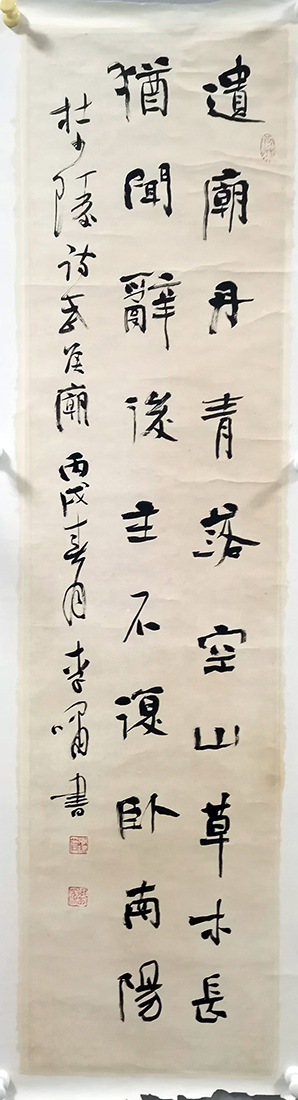 遺廟丹青落空山草木長
猶聞辭後主不復臥南陽
杜少陵詩武侯廟丙戌春月李嘯書